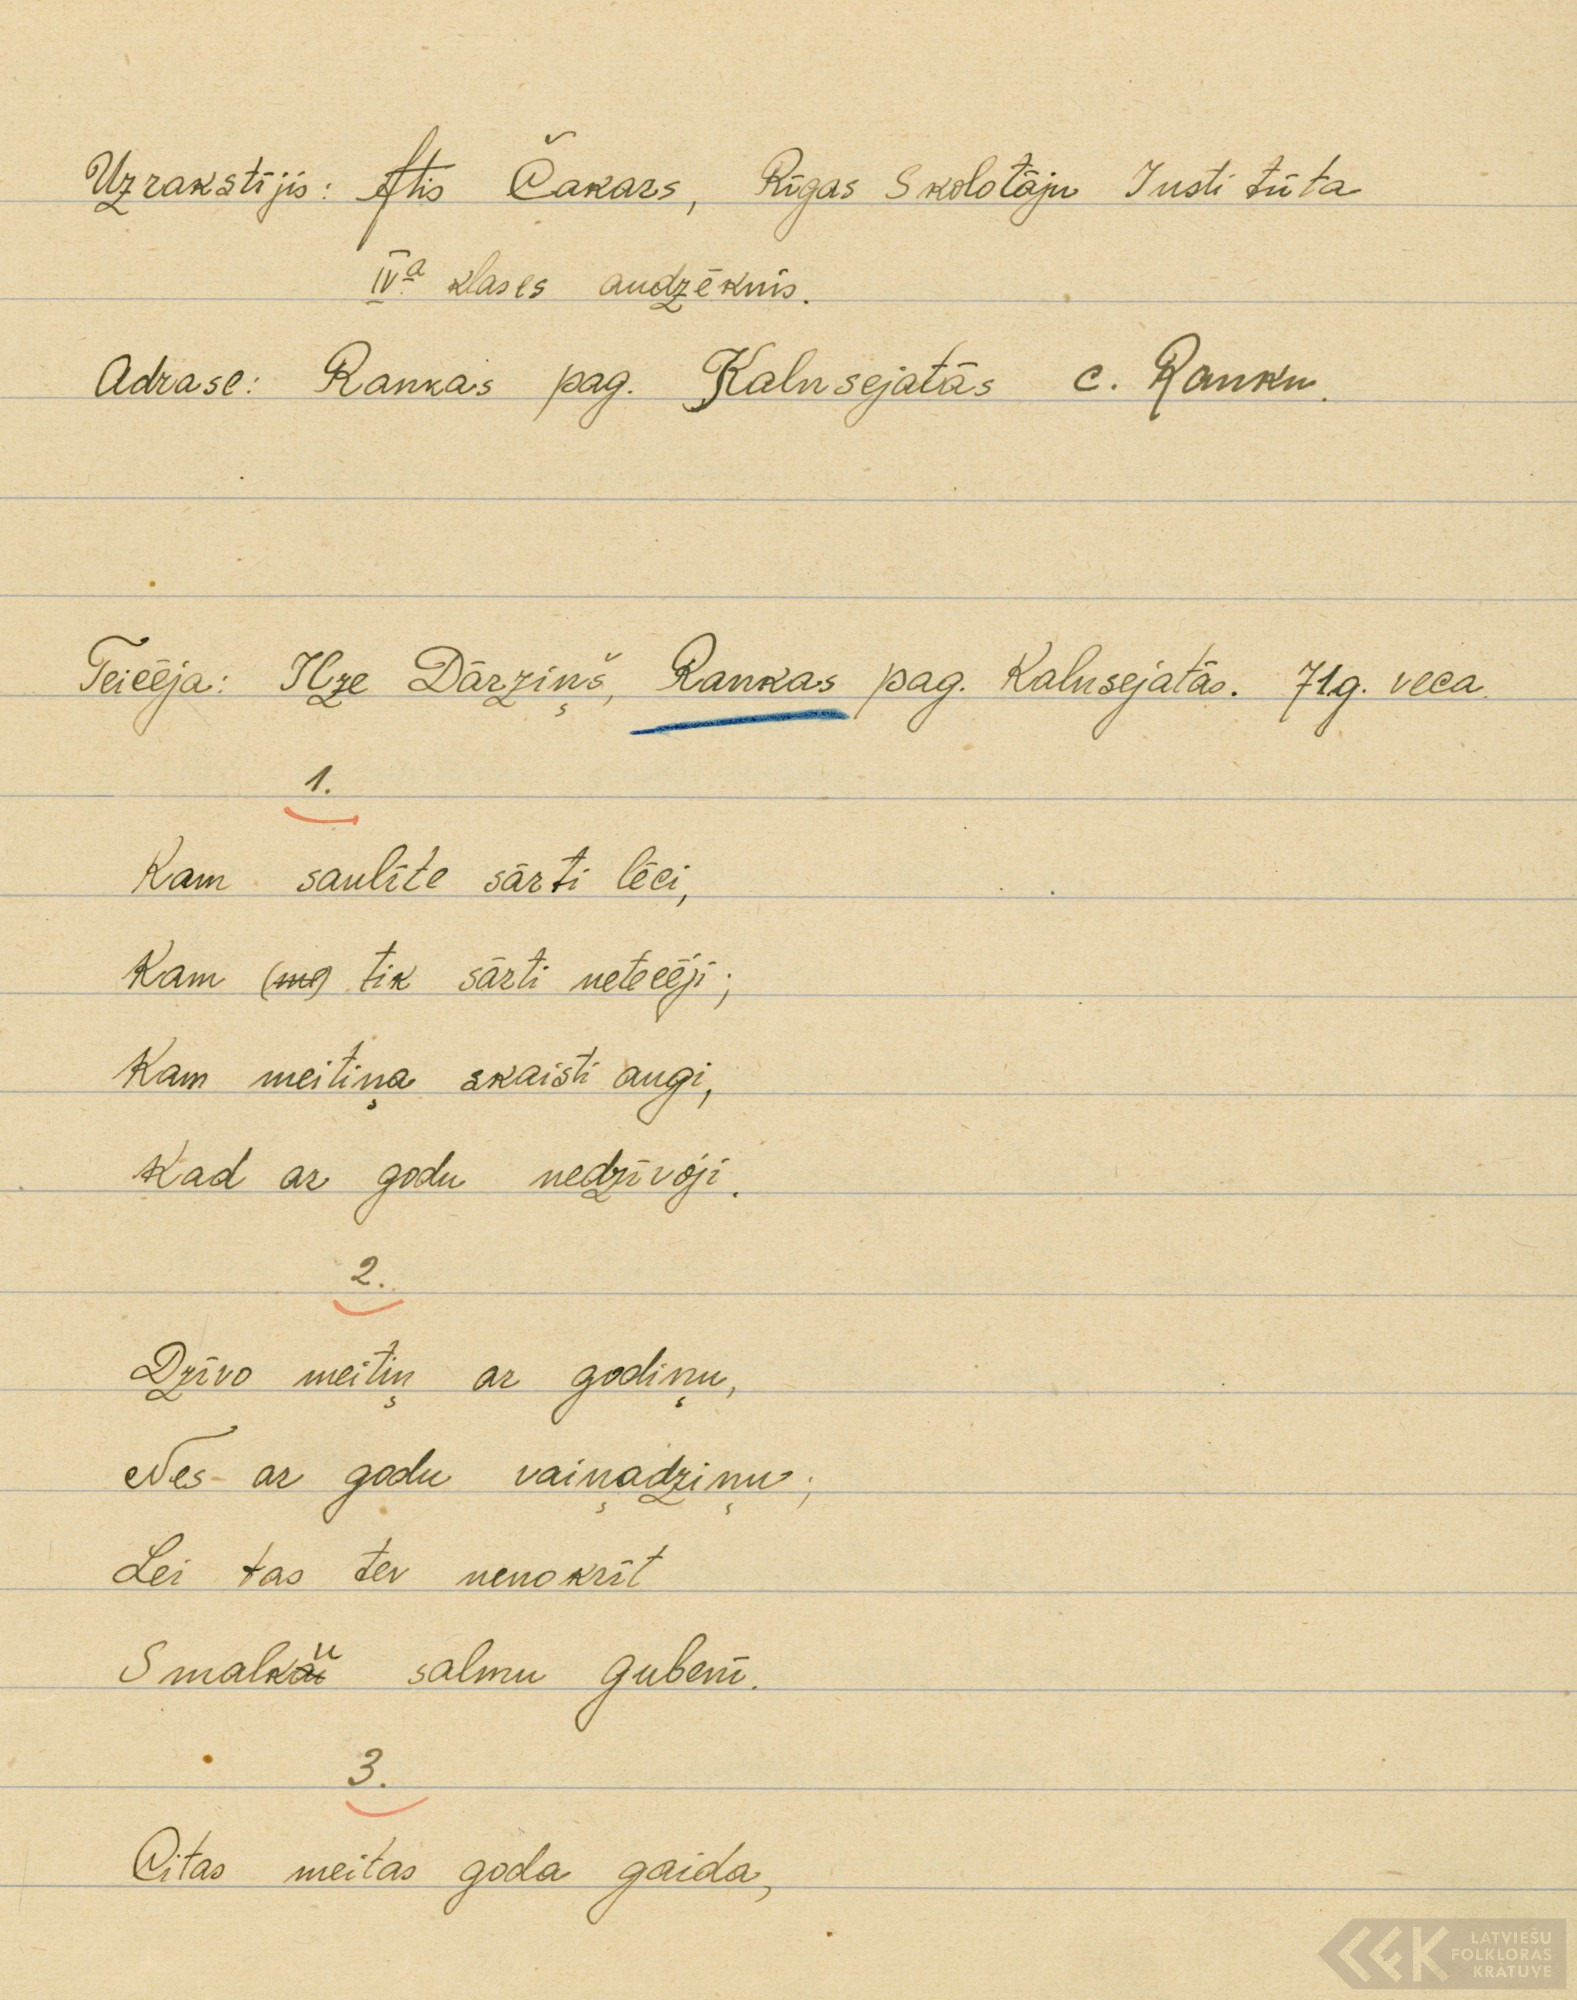 Uzrakstījis: Atis Čakars, Rīgas Skolotāju Institūta
IVa klases audzēknis.
Adrase: Rankas pag. Kalnsejatās c. Ranku.
Teicēja: Ilze Dārziņš, Rankas pag. Kalnsejatās. 71g. veca.
1.
Kam saulīte sārti lēci,
Kam tik sārti netecēji;
Kam meitiņa skaisti augi,
Kad ar godu nedzīvoji.
2.
Dzīvo meitiņ ar godiņu,
Nes ar godu vaiņadziņu;
Lei tas tev nenokrīt
Smalku salmu gubenī.
3.
Citas meitas goda gaida,
LATVIEŠU
FOLKLORAS
KRĀTUVE